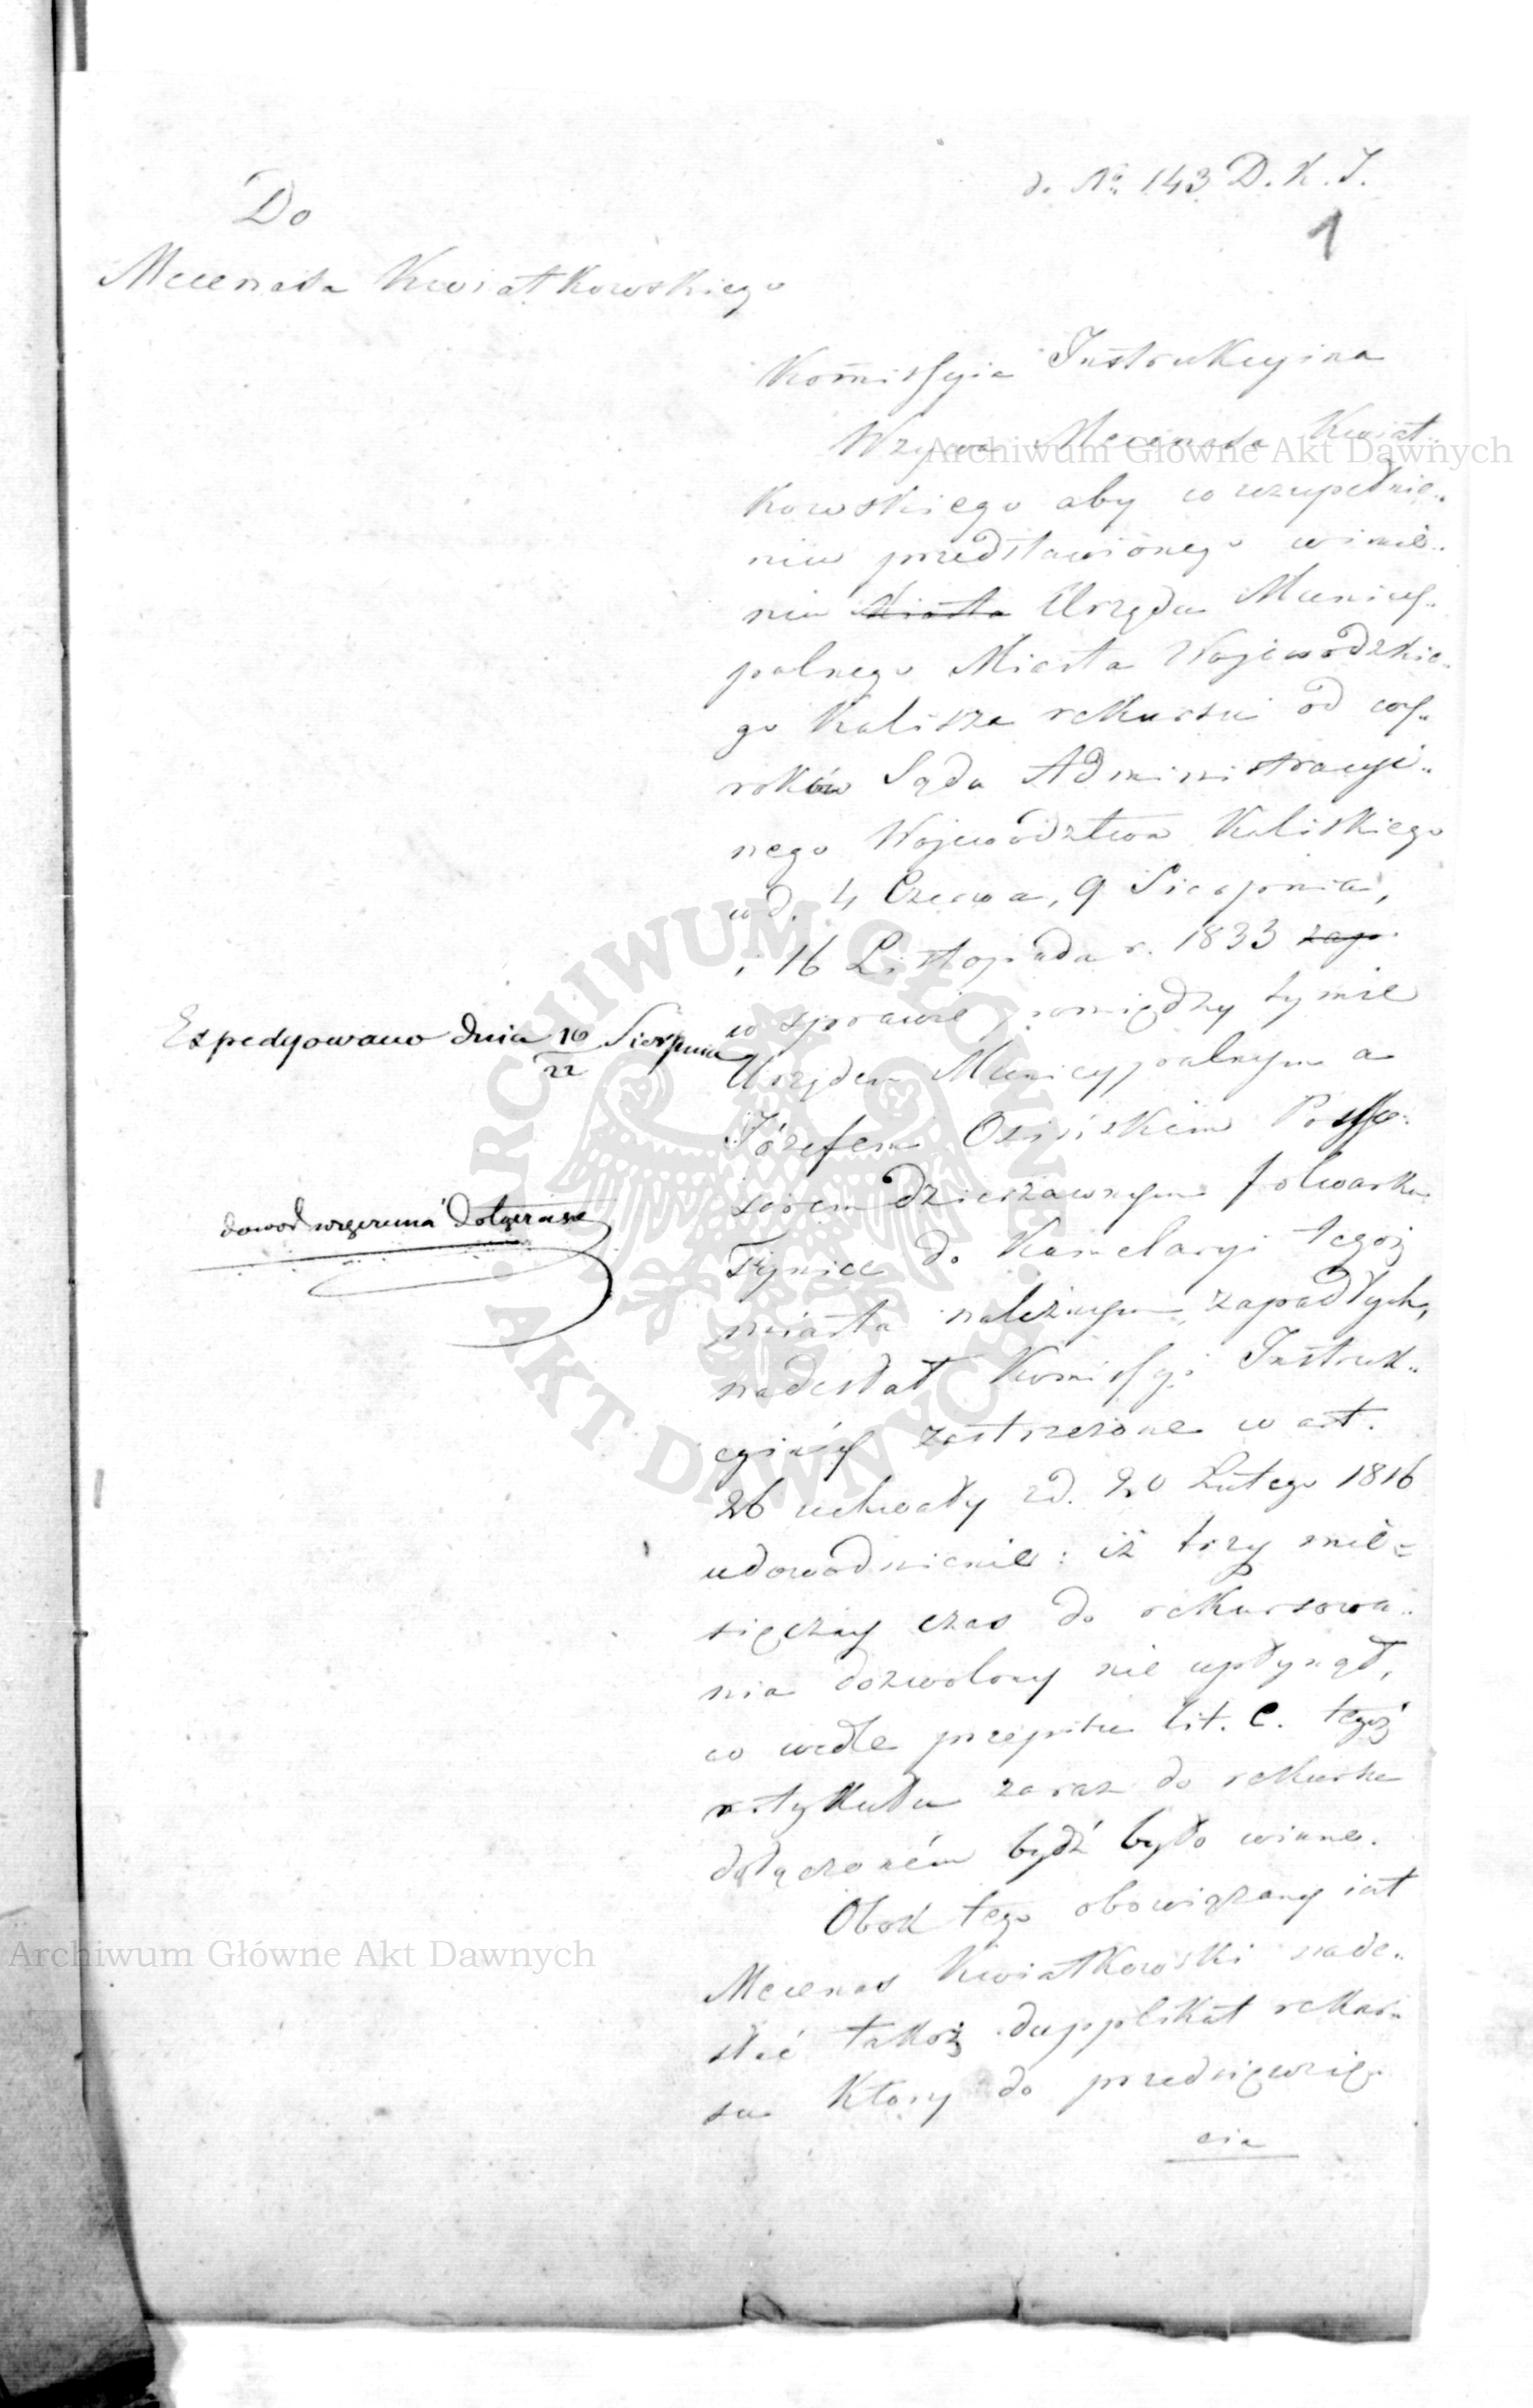 d. No. 143 D. K. I.
1
Do
Mecenasa Kwiatkowskiego
Kommissyia Instrukcyina
Wzywa Mecenasa Kwiat„
kowskiego aby w uzupełnie„
niu przedstawionego wimie„
niu Miasta Urzędu Municy„
palnego Miasta Wojewodzkie„
go Kalisza rekursu od wy„
roków Sądu Administracyi„
nego Województwa Kaliskiego
w d. 4 Czerwca, 9 Sierpnia,
i 16 Listopada r. 1833 zap
w sprawie pomiędzy tymże
Urzędem Municypalnym a
Józefem Osińskim Posse„
sorem dzierżawnym folwarku
Tyniec do Kamelaryi tegoż
miasta należnym, zapadłych,
nadesłał Komissyi Instruk„
cyinéy zastrzeżone w art.
26 uchwały z d. 20 Lutego 1816
udowodnienie: iż trzy mie=
sięczny czas do rekursowa„
nia dozwolony nie upłynął,
co wedle przepisu lit. C. tegoż
artykułu zaraz do rekursu
dołączoném bydź było winno.
Obok tego obowiązany iest
Mecenas Kwiatkowski nade„
słać takoż dupplikat rekur„
su który do przedsięwzię„
cia
Expedyowano dnia 10/22 Sierpnia
dowod wręczenia dołącza się
Archiwum Główne Akt Dawnych
ARCHIWUM GŁÓWNE
AKT DAWNYCH
Archiwum Główne Akt Dawnych